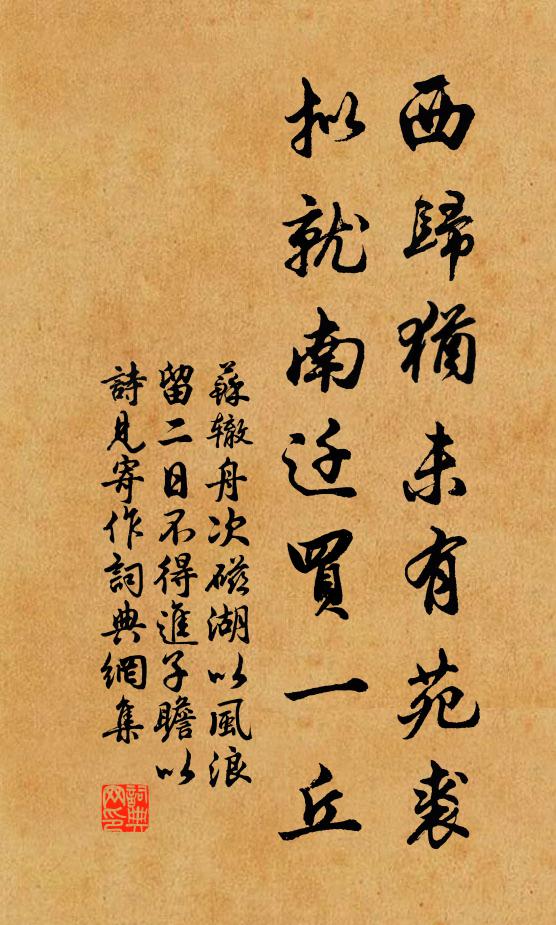 西歸猶未有菟裘
拟就南迁買一丘
蘇辙舟次磁湖以風浪
留二日不得進子瞻以
詩見寄作詞典網集
詞典
网印